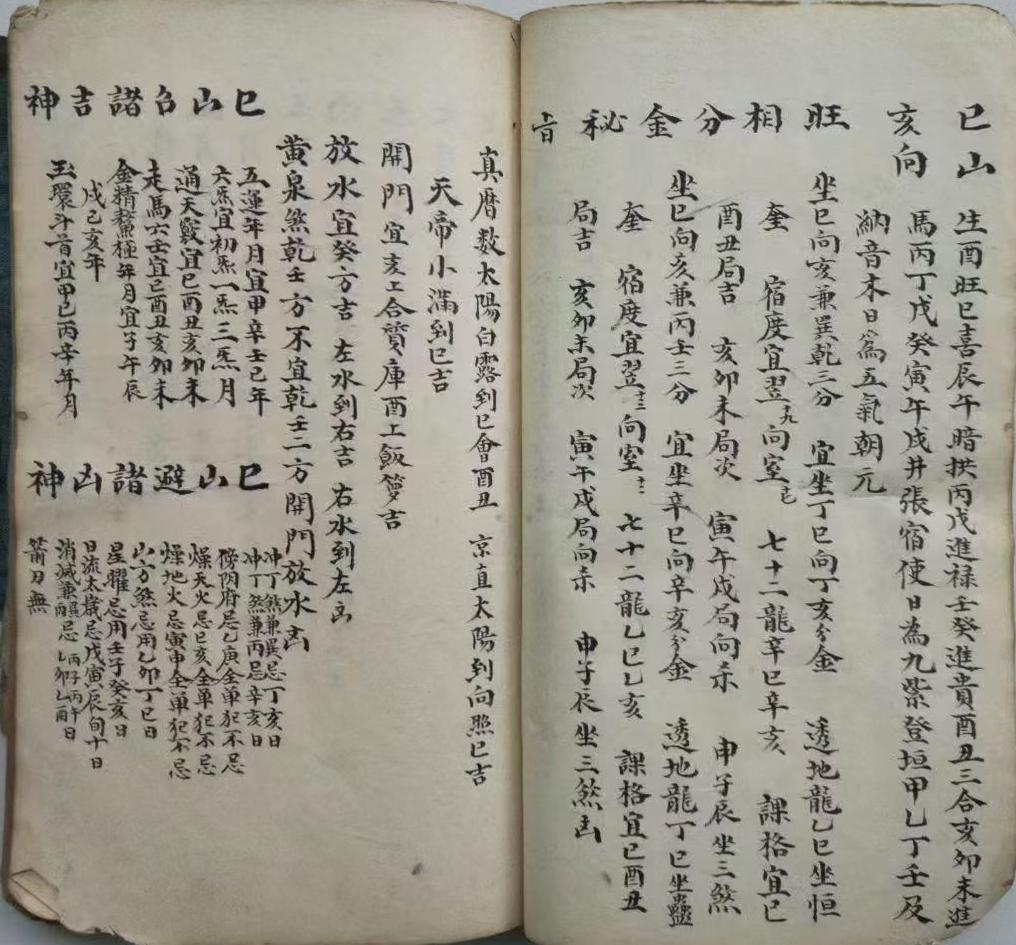 巳山亥向
生酉旺巳喜辰午暗拱丙戊進禄壬癸進貴酉丑三合亥卯未進
馬丙丁戊癸寅午戌井張宿使日為九紫登垣甲乙丁壬及
納音木日為五氣朝元
旺相分金秘旨
坐巳向亥兼巽乾三分 宜坐丁巳向丁亥分金 透地龍乙巳坐恒
奎 宿度宜翌十九向室 七十二龍辛巳辛亥 課格宜巳
酉丑局吉 亥卯未局次 寅午戌局向杀 申子辰坐三煞
坐巳向亥兼丙壬三分 宜坐辛巳向辛亥分金 透地龍丁巳坐蠱
奎 宿度宜翌十三向室十二 七十二龍乙巳乙亥 課格宜巳酉丑
局吉 亥卯未局次 寅午戌局向杀 申子辰坐三煞凶
真曆数太陽白露到巳會酉丑 京直太陽到向照巳吉
天帝小滿到巳吉
開門宜亥工合質庫酉工飯箩吉
放水宜癸方吉 左水到右吉 右水到左凶
黄泉煞乾壬方不宜乾壬二方開門放水凶
巳山召諸吉神
五運年月宜甲辛壬巳年
六炁宜初炁一炁三炁月
通天竅宜巳酉丑亥卯未
走馬六壬宜巳酉丑亥卯未
金精鰲極年月宜子午辰
戌己亥年
玉環斗首宜甲巳丙辛年月
巳山避諸凶神
冲丁煞兼巽忌丁亥日
冲丁煞兼丙忌辛亥日
傍阴府忌乙庚全单犯不忌
燥天火忌巳亥全单犯不忌
燥地火忌寅申全单犯不忌
山方煞忌用乙卯丁巳日
星曜忌用壬子癸亥日
日流太歲忌戊寅辰旬十日
消滅兼忌丙子丙午日乙卯乙酉日
箭刃無